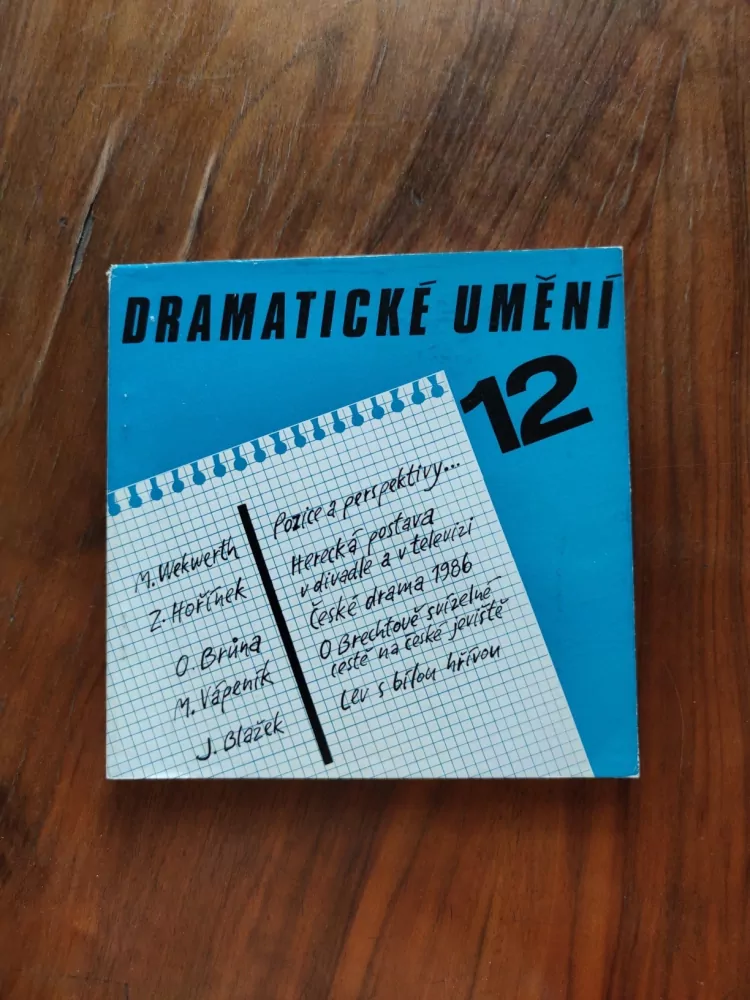 DRAMATICKÉ UMĚNÍ
12
M. Wekwerth
Pozice a perspektivy...
Z. Hořínek
Herecká postava
v divadle a v televizi
O. Brůna
České drama 1986
M. Vápeník
O Brechtově svízelné
cestě na české jeviště
J. Blažek
Lev s bílou hřívou